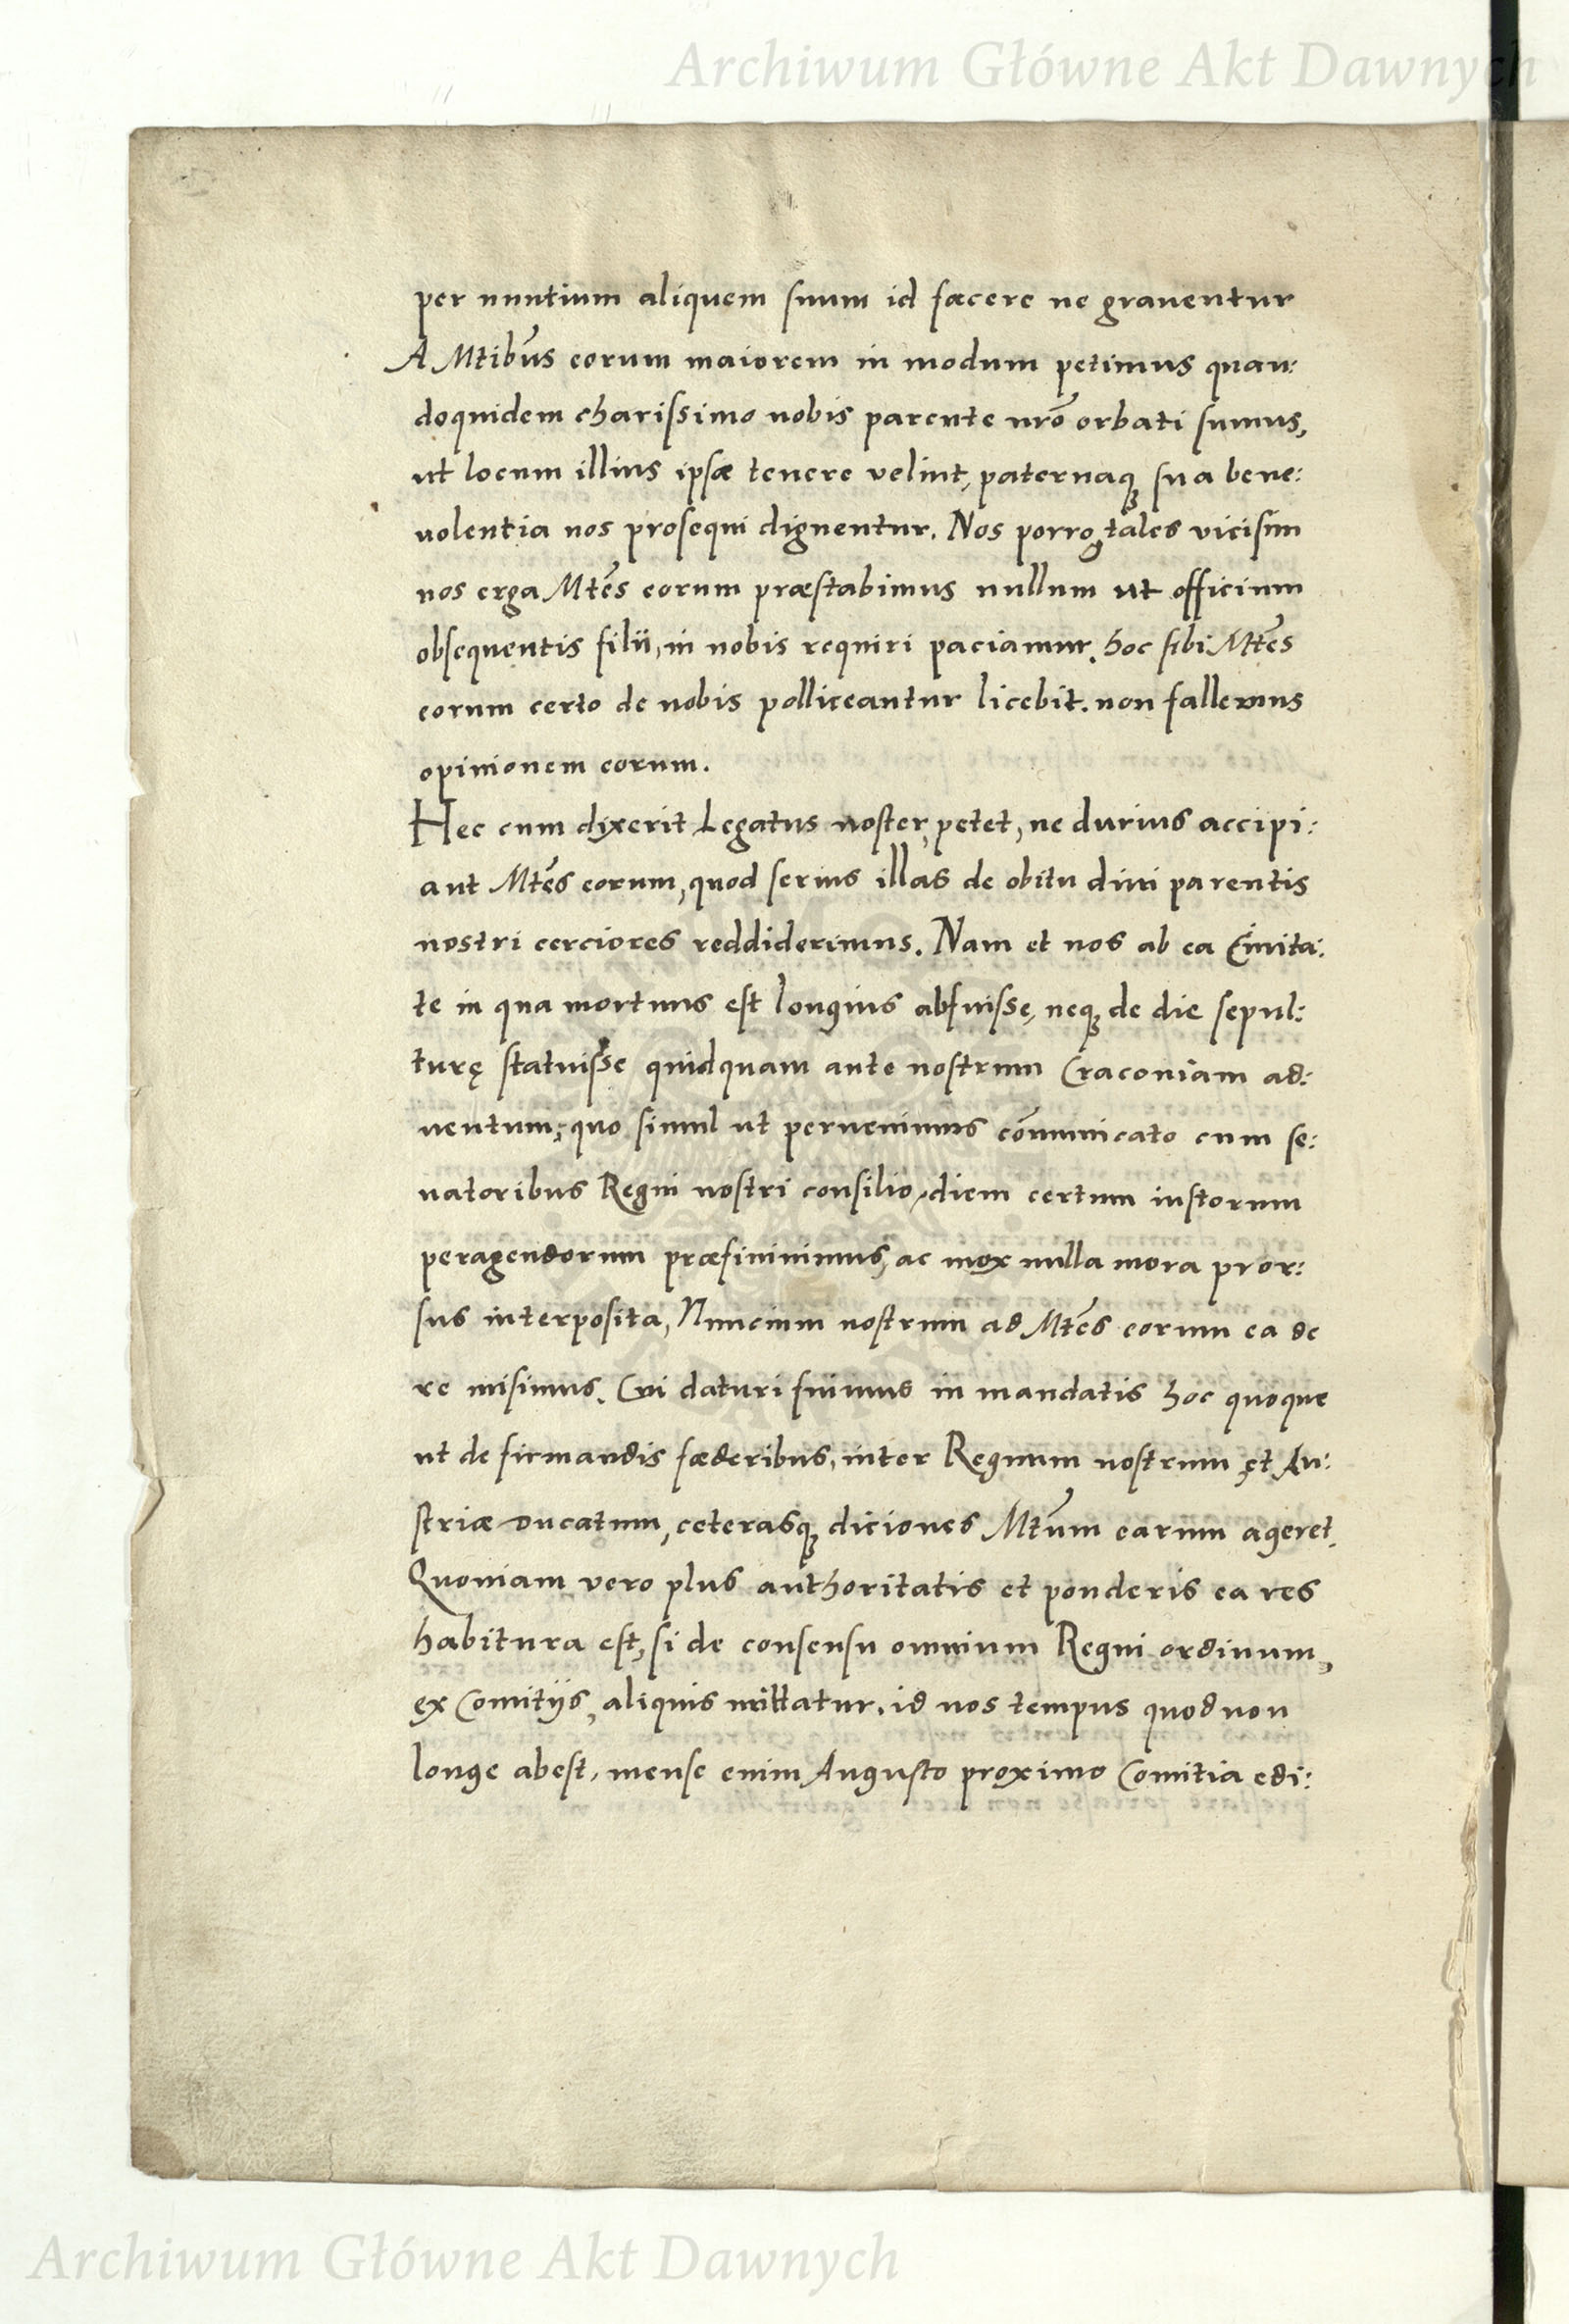 Archiwum Główne Akt Dawnych
per nuntium aliquem suum id facere ne grauentur
A Mtibus eorum maiorem in modum petimus quan:
doquidem charissimo nobis parente nrõ orbati sumus,
ut locum illius ipsæ tenere velint, paternaqꝫ sua bene:
uolentia nos prosequi dignentur. Nos porro tales vicisim
nos erga Mtẽs eorum præstabimus nullum ut officium
obsequentis filii, in nobis requiri paciamur. hoc sibi Mtẽs
eorum certo de nobis polliceantur licebit. non fallemus
opinionem eorum.
Hec cum dixerit Legatus noster, petet, ne durius accipi:
ant Mtẽs eorum, quod serius illas de obitu diui parentis
nostri cerciores reddiderimus. Nam et nos ab ea Ciuita:
te in qua mortuus est longius abfuisse, neqꝫ de die sepul:
turę statuisse quidquam ante nostrum Cracouiam ad:
uentum, quo simul ut peruenimus cõmunicato cum se:
natoribus Regni nostri consilio, diem certum iustorum
peragendorum præfiniuimus, ac mox nulla mora pror:
sus interposita, Nuncium nostrum ad Mtẽs eorum ea de
re misimus. Cui daturi fuimus in mandatis hoc quoque
ut de firmandis fæderibus, inter Regnum nostrum et Au:
striæ Ducatum, ceterasqꝫ diciones Mtũm earum ageret.
Quoniam vero plus authoritatis et ponderis ea res
habitura est, si de consensu omnium Regni ordinum,
ex Comitijs, aliquis mittatur. id nos tempus quod non
longe abest, mense enim Augusto proximo Comitia edi:
Archiwum Główne Akt Dawnych